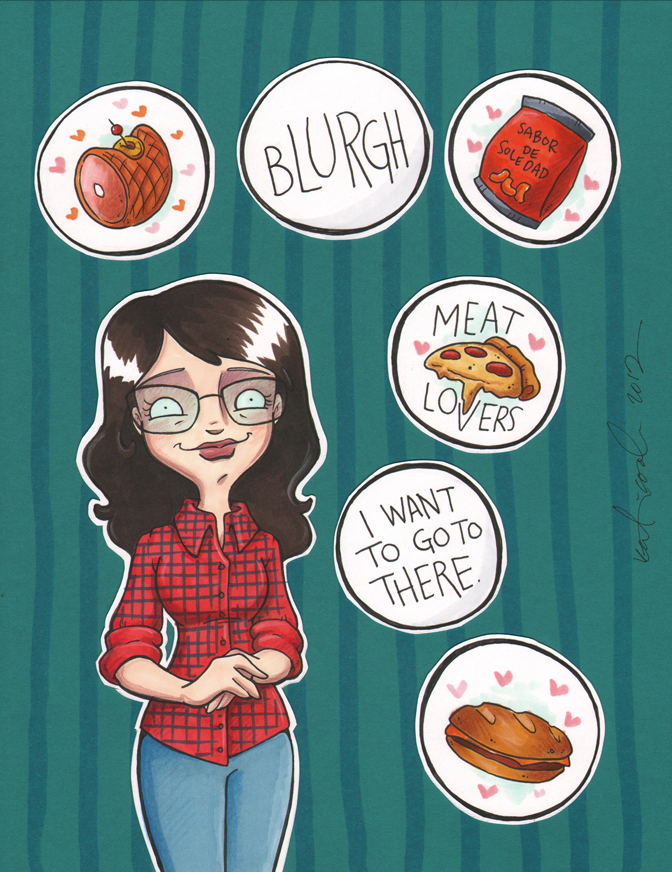 BLURGH
SABOR
DE
SOLEDAD
MEAT
LOVERS
I WANT
TO GO TO
THERE.
2012